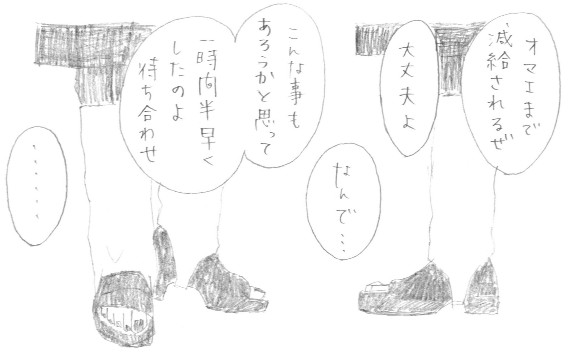 オマエまで
減給されるぜ
大丈夫よ
なんで…
こんな事も
あろうかと思って
一時間半早く
したのよ
待ち合わせ
・・・・・・・